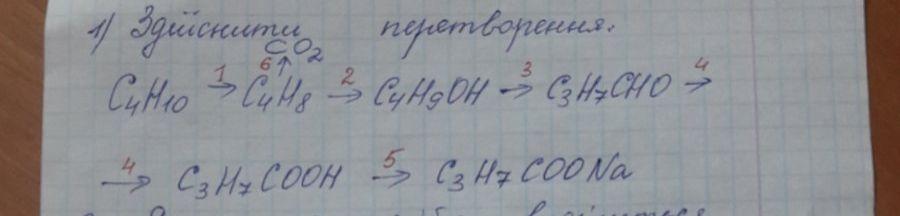 1) Здійснити перетворення.
CO2
C4H10 1→ C4H8 6↑ 2→ C4H9OH 3→ C3H7CHO 4→
4→ C3H7COOH 5→ C3H7COONa